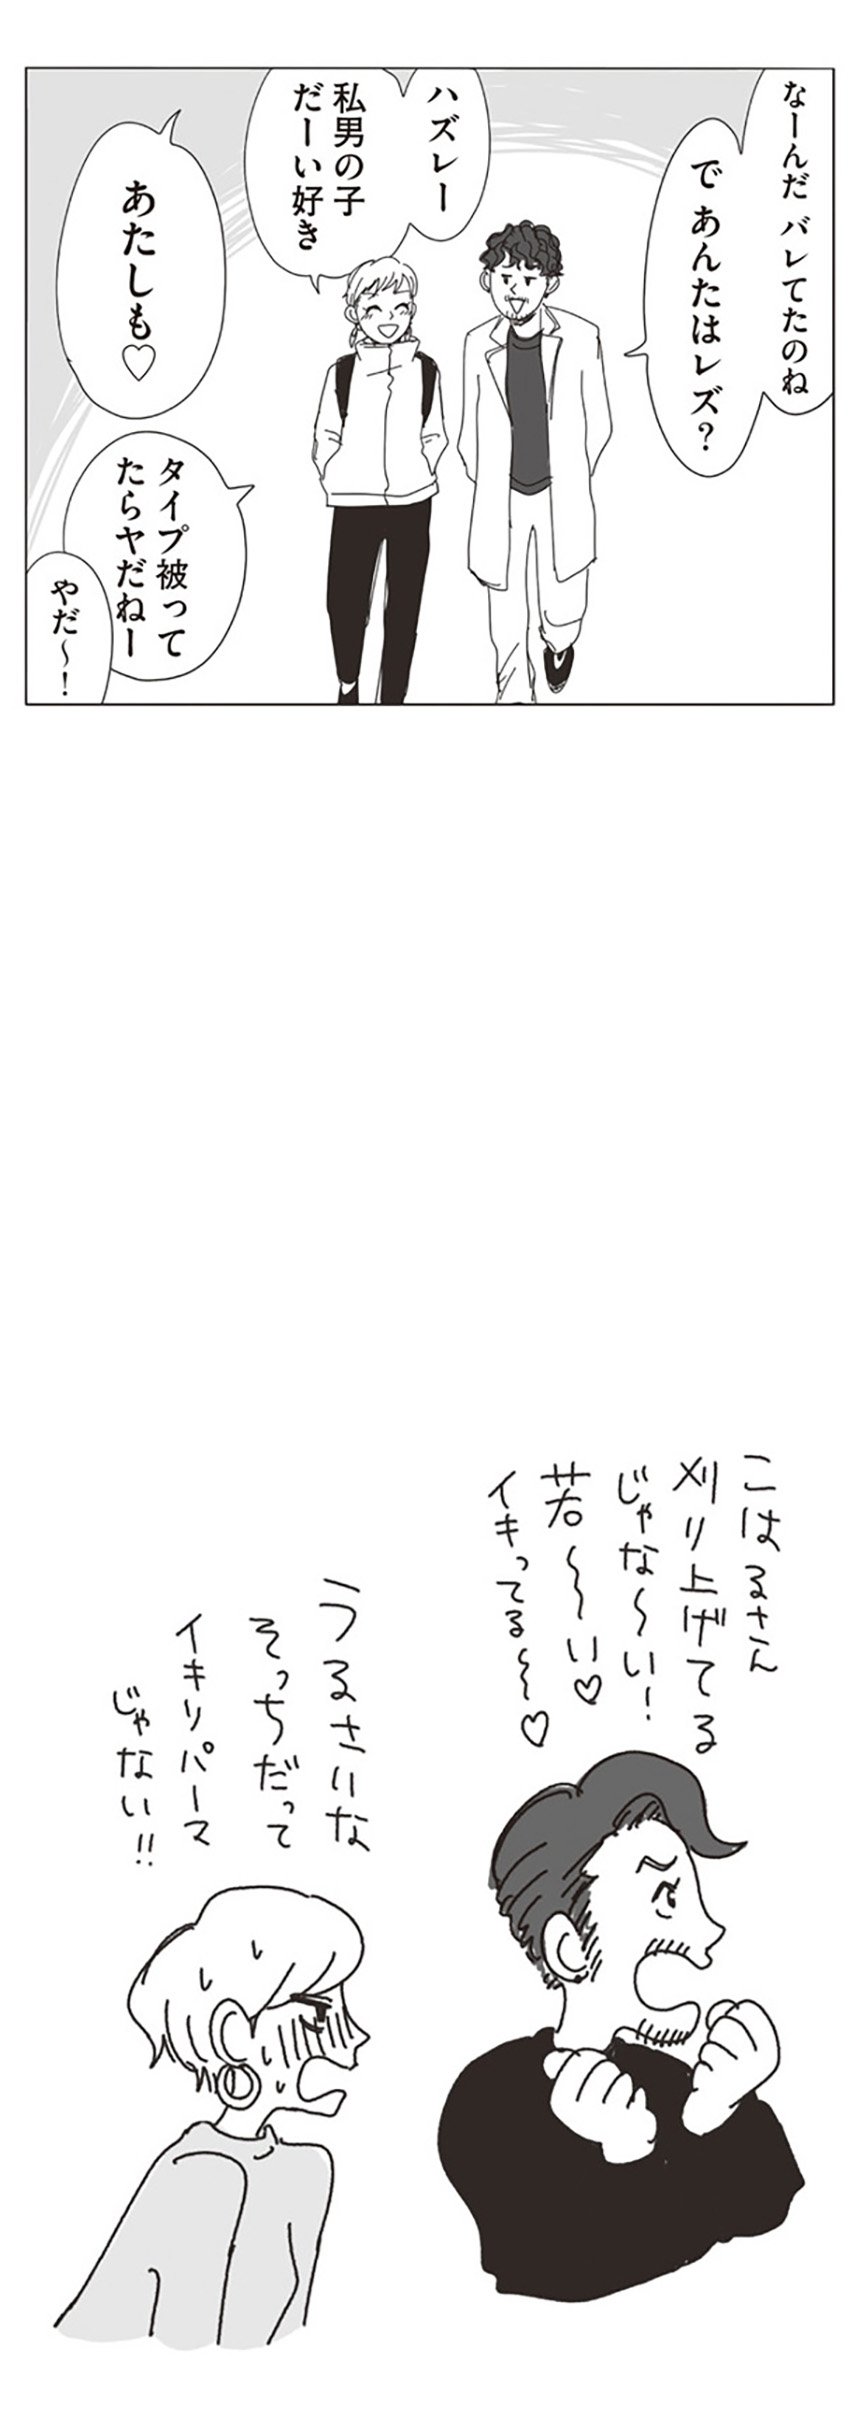 なーんだ バレてたのね
で あんたはレズ？
ハズレー
私男の子
だーい好き
あたしも♡
タイプ被って
たらヤだねー
やだ〜！
こはるさん
刈り上げてる
じゃな〜い！
若〜〜い♡
イキってる〜♡
うるさいな
そっちだって
イキリパーマ
じゃない!!